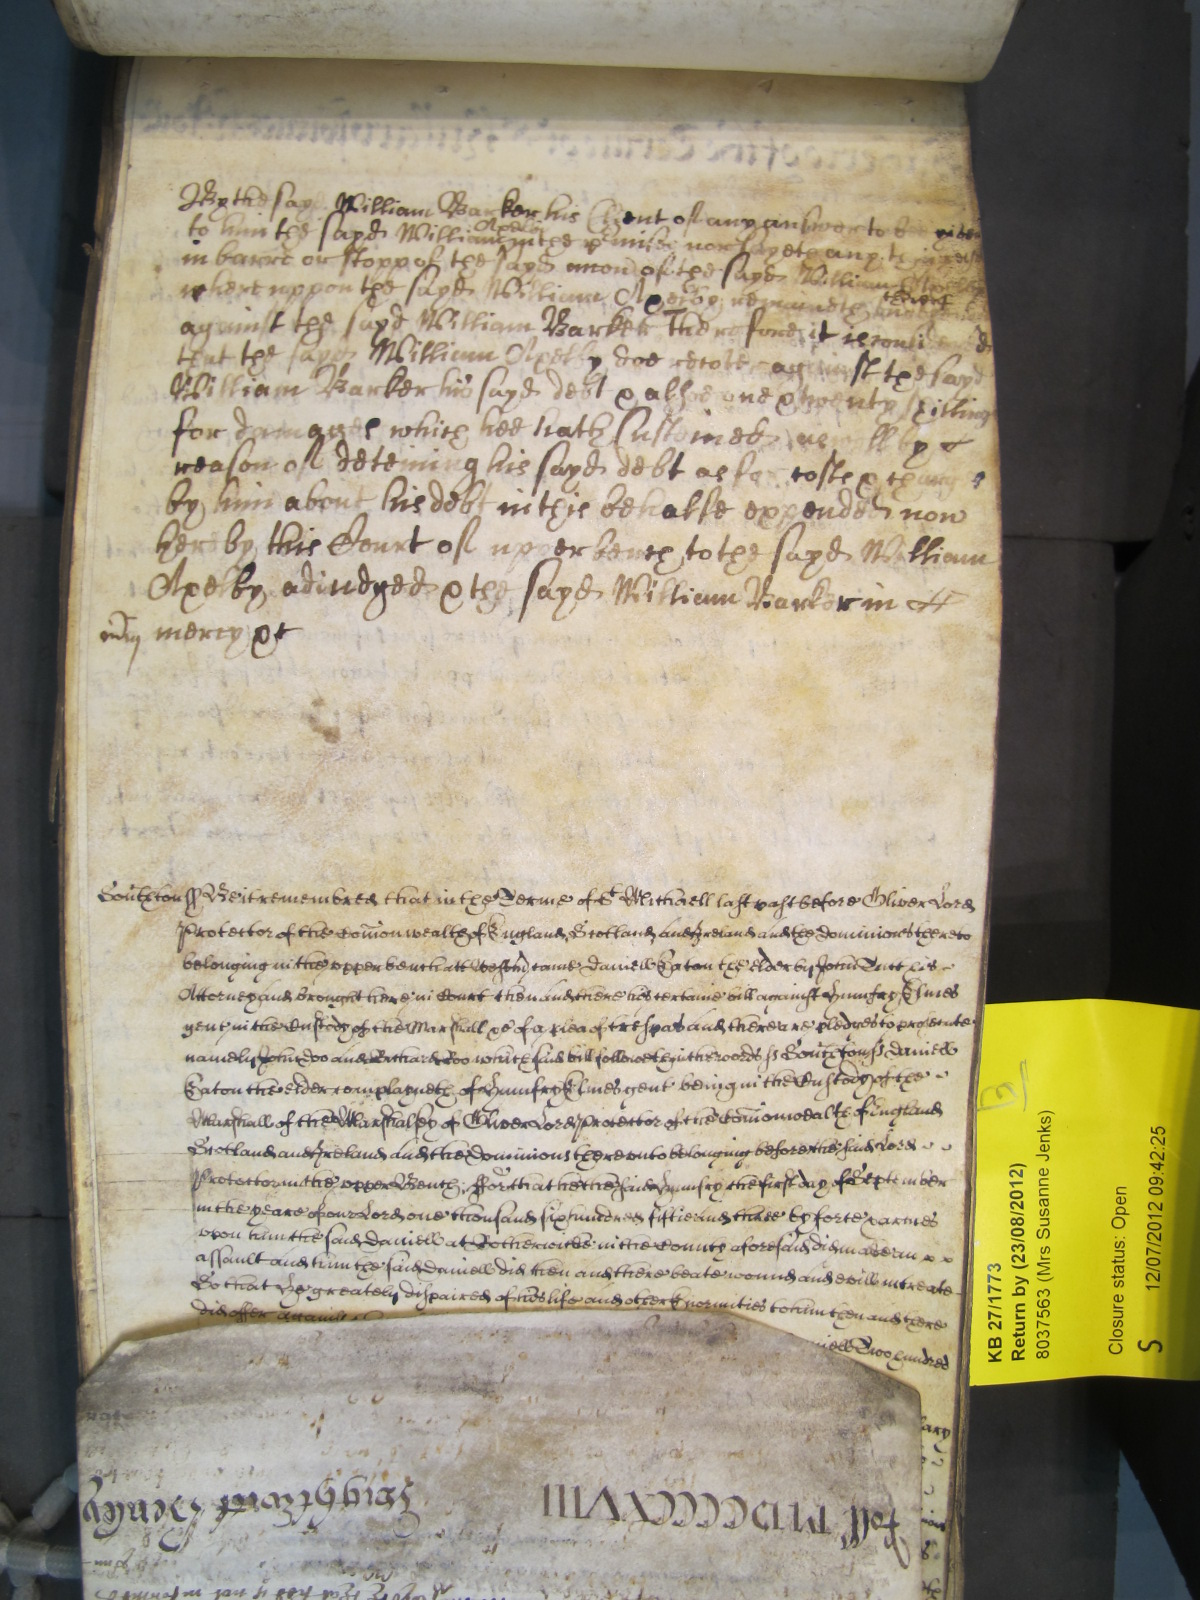 By the sayd William Barker his Clyent of any answer to bee given
to him the sayd William Apelby in the p'misses nor sayeth any thinge
in barre or stopp of the sayd accon of the sayd William Apelby
whereuppon the sayd William Apelby remaineth therein
against the sayd William Barker Therefore it is considered
that the sayd William Apelby doe recover against the sayd
William Barker his sayd debt & alsoe one & twenty shillings
for damages which hee hath susteined as well by
reason of deteining his sayd debt as for costs & charges
by him about his debt in this behalfe expended now
here by this Court of upper bench to the sayd William
Apelby adiudged & the sayd William Barker in
mercy &c
Southton ss Be it remembred that in the Terme of St Michaell last past before Oliver Lord
Protector of the Comonwealth of England Scotland and Ireland and the dominions thereto
belonging in the upper bench att Westm came Daniell Eaton the elder by John his
Attorney and brought here in Court then and there his certaine bill against Humfry Elmes
gent in the Custody of the Marshall &c of a plea of trespas and there are pledges to prosecute
namely John Doo and Richard Roo which said bill followeth in these words ss Southton ss Daniell
Eaton the elder complayneth of Humfry Elmes gent being in the Custody of the
Marshall of the Marshalsey of Oliver Lord Protector of the Comonwealth of England
Scotland and Ireland and the Dominions thereunto belonging before the said Lord
Protector in the upper Bench For that he the said Humfry the first day of September
in the yeare of our Lord one thousand six hundred fiftie and three by force & armes
upon him the said Daniell at in the County aforesaid did make an
assault and him the said Daniell did then and there beate wound and evilly intreate
So that he greately dispaired of his life and other Enormities to him then and there
did offer against
Daniell Two hundred
Roll MDCCCCXVIII
KB 27/1773
Return by (23/08/2012)
8037563 (Mrs Susanne Jenks)
Closure status: Open
S 12/07/2012 09:42:25